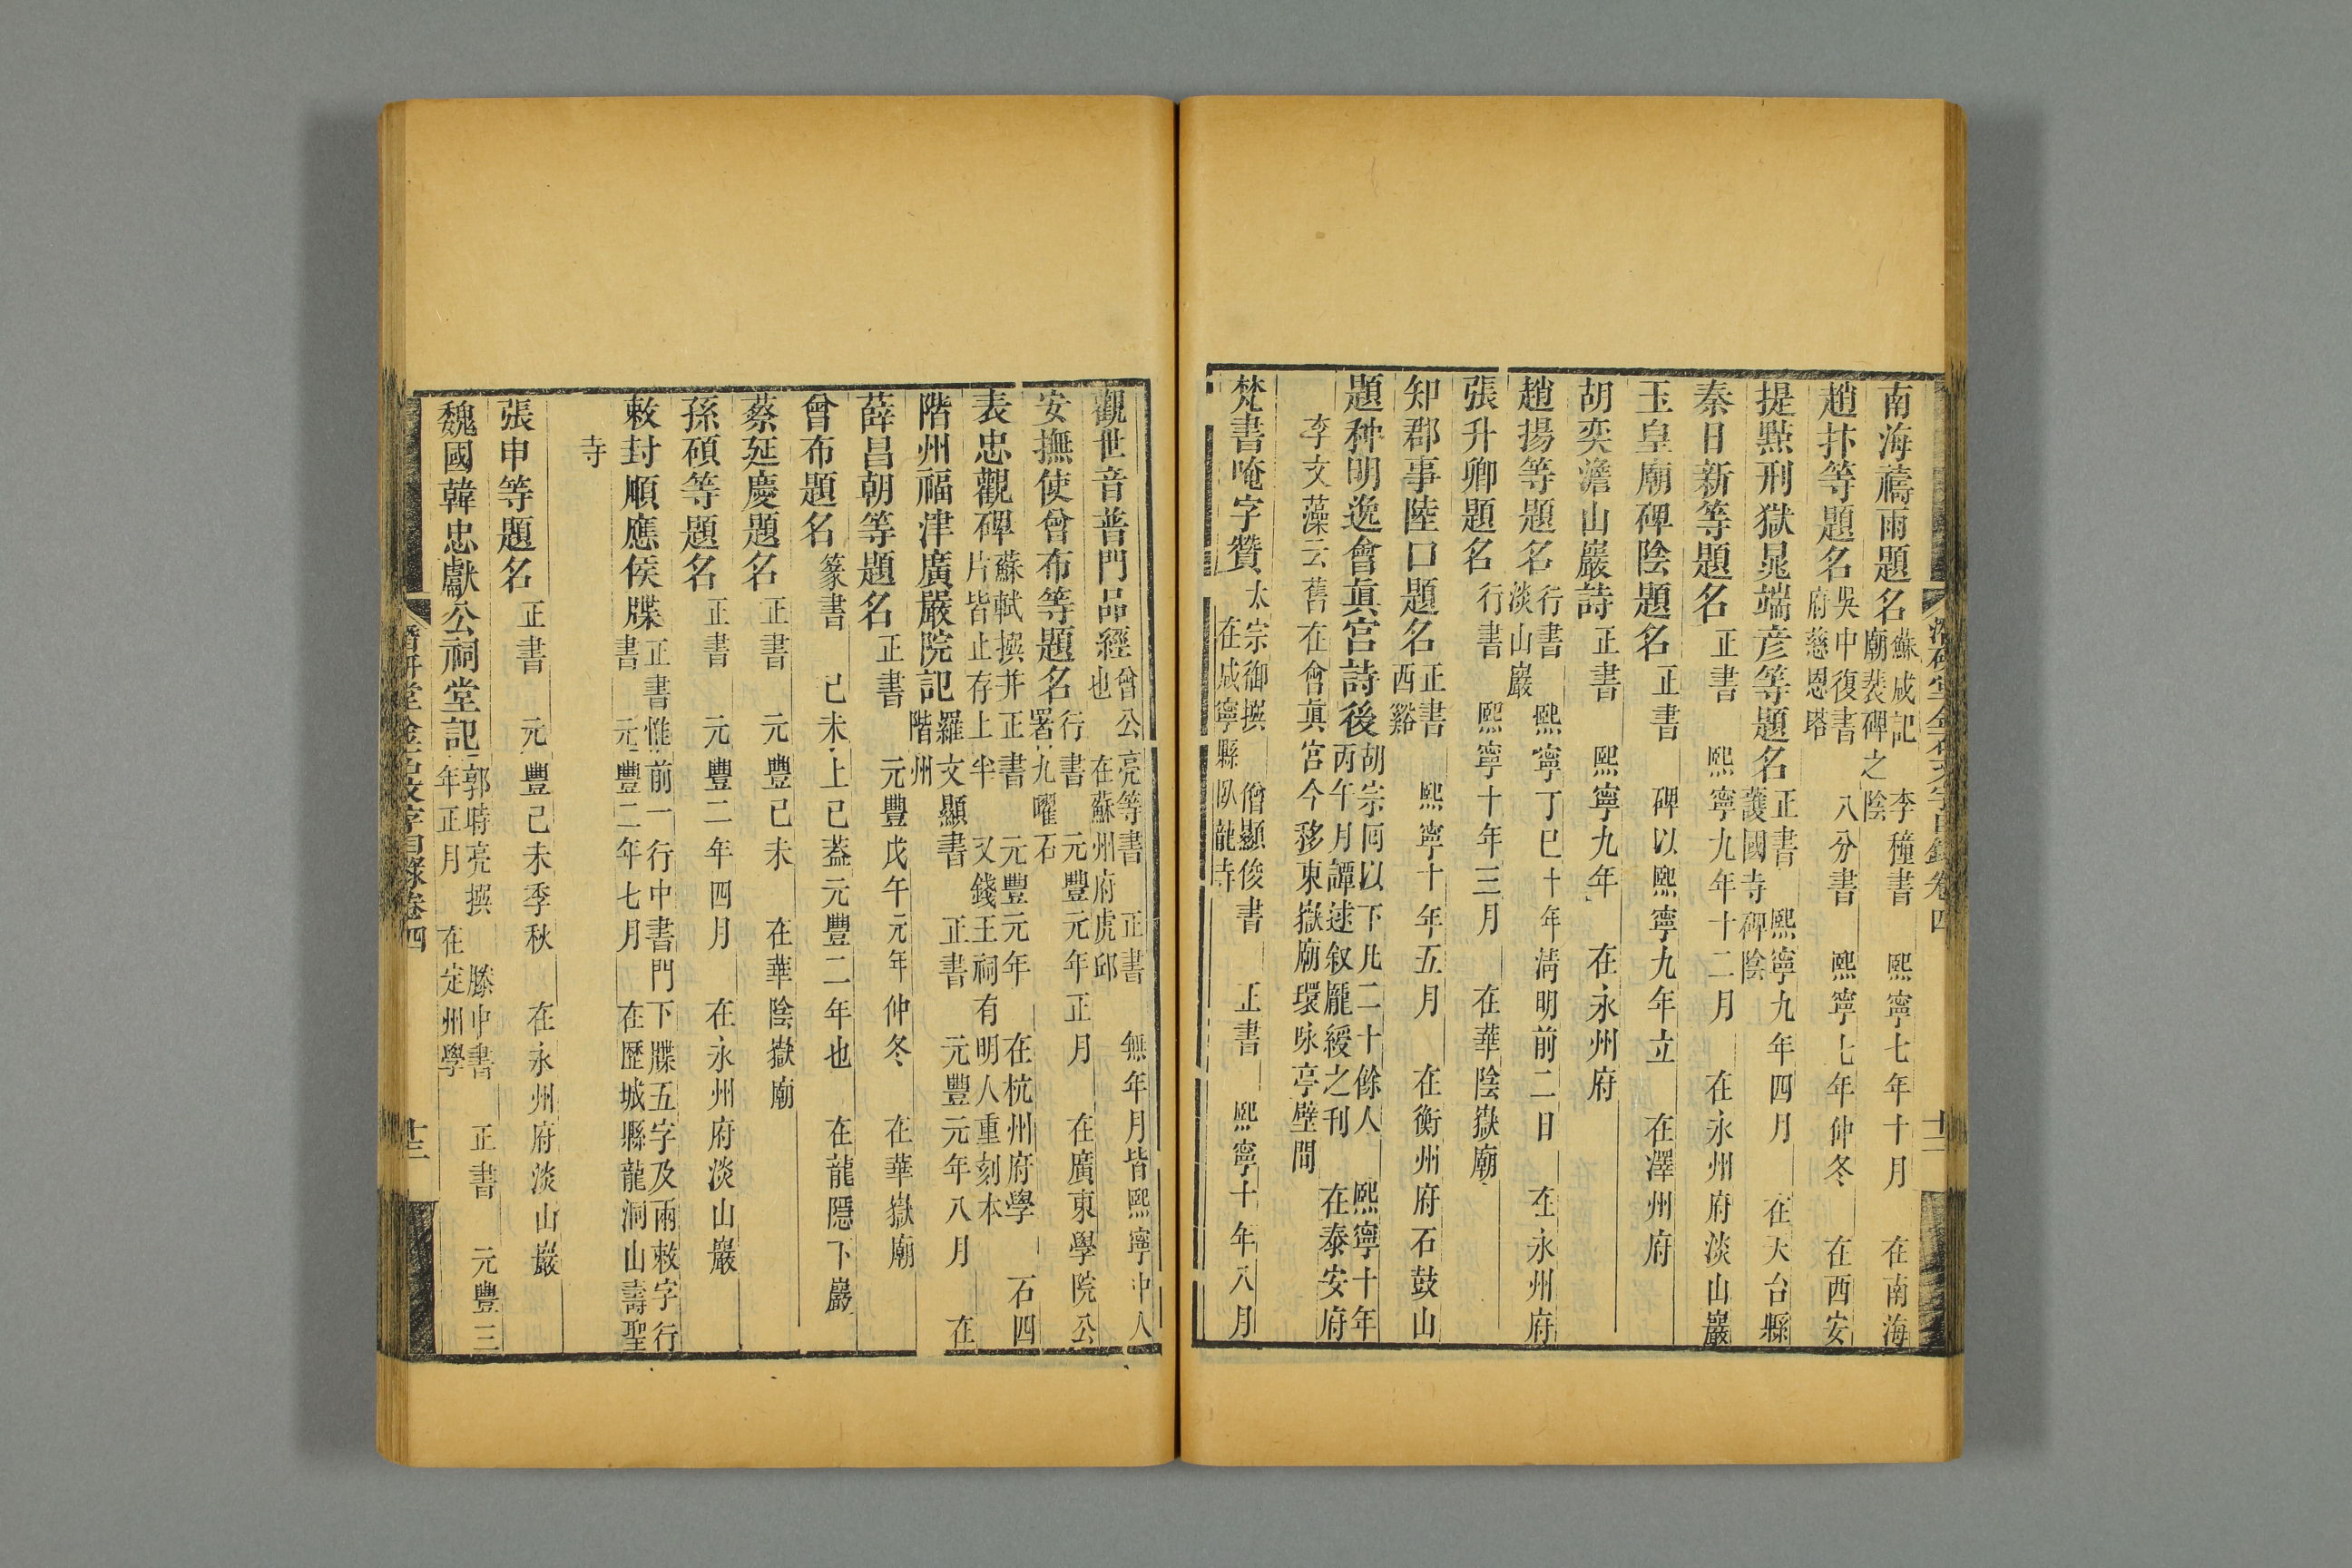 南海禱雨題名 蘇咸記 李穜書 熙寧七年十月 在南海
廟裴碑之陰
趙抃等題名 吳中復書 八分書 熙寧七年仲冬 在西安
府慈恩塔
提㸃刑獄晁端彦等題名 正書 熙寧九年四月 在天台縣
護國寺碑陰
秦日新等題名 正書 熙寧九年十二月 在永州府淡山巖
玉皇廟碑陰題名 正書 碑以熙寧九年立 在澤州府
胡奕澹山巖詩 正書 熙寧九年 在永州府
趙揚等題名 行書 熙寧丁巳十年淸明前二日 在永州府
淡山巖
張升卿題名 行書 熙寧十年三月 在華陰嶽廟
知郡事陸口題名 正書 熙寧十年五月 在衡州府石鼓山
西谿
題种明逸會眞宫詩後 胡宗囘以下凡二十餘人 熙寧十年
丙午月譚述叙龎緩之刊 在泰安府
李文藻云舊在會眞宫今移東嶽廟環咏亭壁間
梵書唵字贊 太宗御撰 僧顯俊書 正書 熙寧十年八月
在咸寧縣臥龍寺
潛研堂金石文字目錄卷四 十二
觀世音普門品經 曾公亮等書 正書 無年月皆熙寧中人
也 在蘇州府虎邱
安撫使曾布等題名 行書 元豐元年正月 在廣東學院公
署九曜石
表忠觀碑 蘇軾撰并正書 元豐元年 在杭州府學 石四
片皆止存上半 又錢王祠有明人重刻本
階州福津廣嚴院記 羅文顯書 正書 元豐元年八月 在
階州
薛昌朝等題名 正書 元豐戊午元年仲冬 在華嶽廟
曾布題名 篆書 己未上巳葢元豐二年也 在龍隱下巖
蔡延慶題名 正書 元豐己未 在華陰嶽廟
孫頎等題名 正書 元豐二年四月 在永州府淡山巖
敕封順應侯牒 正書惟前一行中書門下牒五字及兩敕字行
書 元豐二年七月 在歷城縣龍洞山壽聖
寺
張申等題名 正書 元豐己未季秋 在永州府淡山巖
魏國韓忠獻公祠堂記 郭時亮撰 滕中書 正書 元豐三
年正月 在定州學
潛研堂金石文字目錄卷四 十三